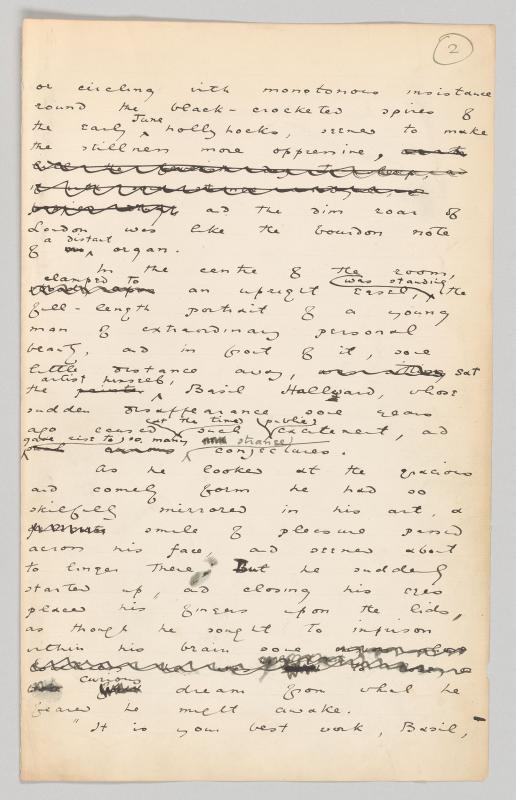 2
or circling with monotonous insistance
round the black-crocketed spires of
the early June hollyhocks, seemed to make
the stillness more oppressive,
and the dim roar of
London was like the bourdon note
of a distant organ.
In the centre of the room,
clamped to an upright easel, was standing the
full-length portrait of a young
man of extraordinary personal
beauty, and in front of it, some
little distance away, sat
the artist himself, Basil Hallward, whose
sudden disappearance some years
ago caused at the time such public excitement, and
gave rise to so many strange conjectures.
As he looked at the gracious
and comely form he had so
skilfully mirrored in his art, a
smile of pleasure passed
across his face, and seemed about
to linger there. But he suddenly
started up, and closing his eyes
placed his fingers upon the lids,
as though he sought to imprison
within his brain some
curious dream from which he
feared he might awake.
"It is your best work, Basil,